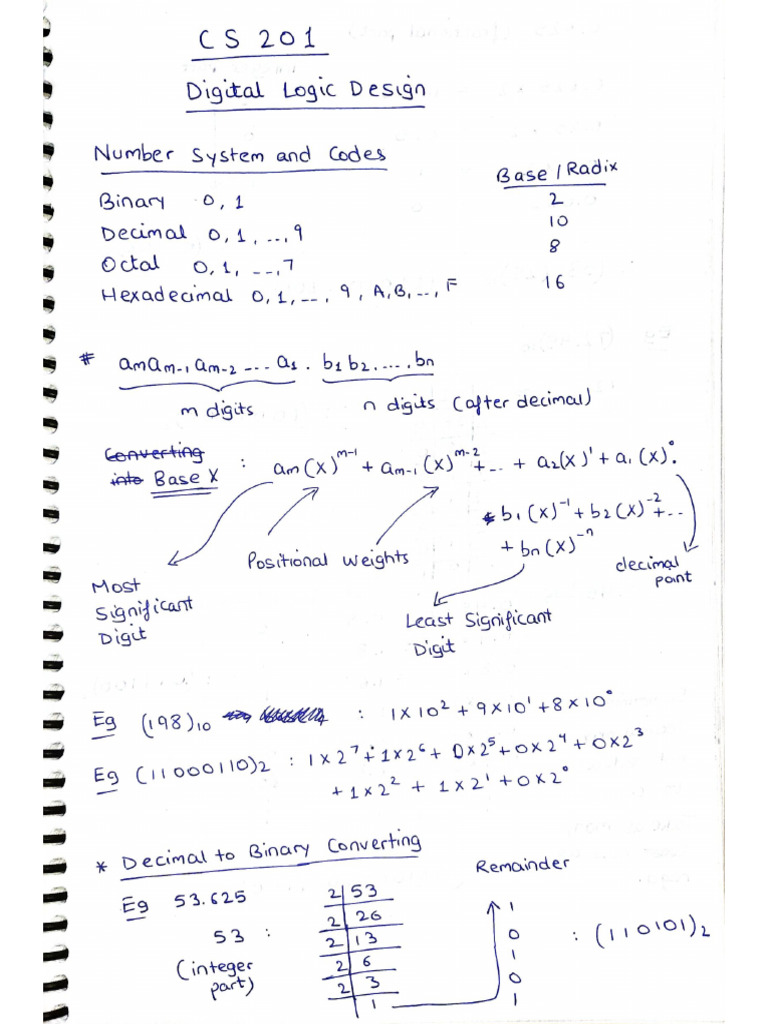 CS 201
Digital Logic Design
Number System and Codes
Base / Radix
Binary 0, 1 2
Decimal 0, 1, ..., 9 10
Octal 0, 1, ..., 7 8
Hexadecimal 0, 1, ..., 9, A, B, ..., F 16
# aₘaₘ₋₁aₘ₋₂ .... a₁ . b₁b₂ ..... bₙ
m digits n digits (after decimal)
Converting
into Base X : aₘ(X)ᵐ⁻¹ + aₘ₋₁(X)ᵐ⁻² + ... + a₂(X)¹ + a₁(X)⁰ .
b₁(X)⁻¹ + b₂(X)⁻² + ...
+ bₙ(X)⁻ⁿ
Positional Weights
decimal
point
Most
Significant
Digit
Least Significant
Digit
Eg (198)₁₀ : 1×10² + 9×10¹ + 8×10⁰
Eg (11000110)₂ : 1×2⁷ + 1×2⁶ + 0×2⁵ + 0×2⁴ + 0×2³
+ 1×2² + 1×2¹ + 0×2⁰
* Decimal to Binary Converting
Remainder
Eg 53.625
53 :
(integer
part)
2 | 53
2 | 26 1
2 | 13 0 : (110101)₂
2 | 6 1
2 | 3 0
1 1